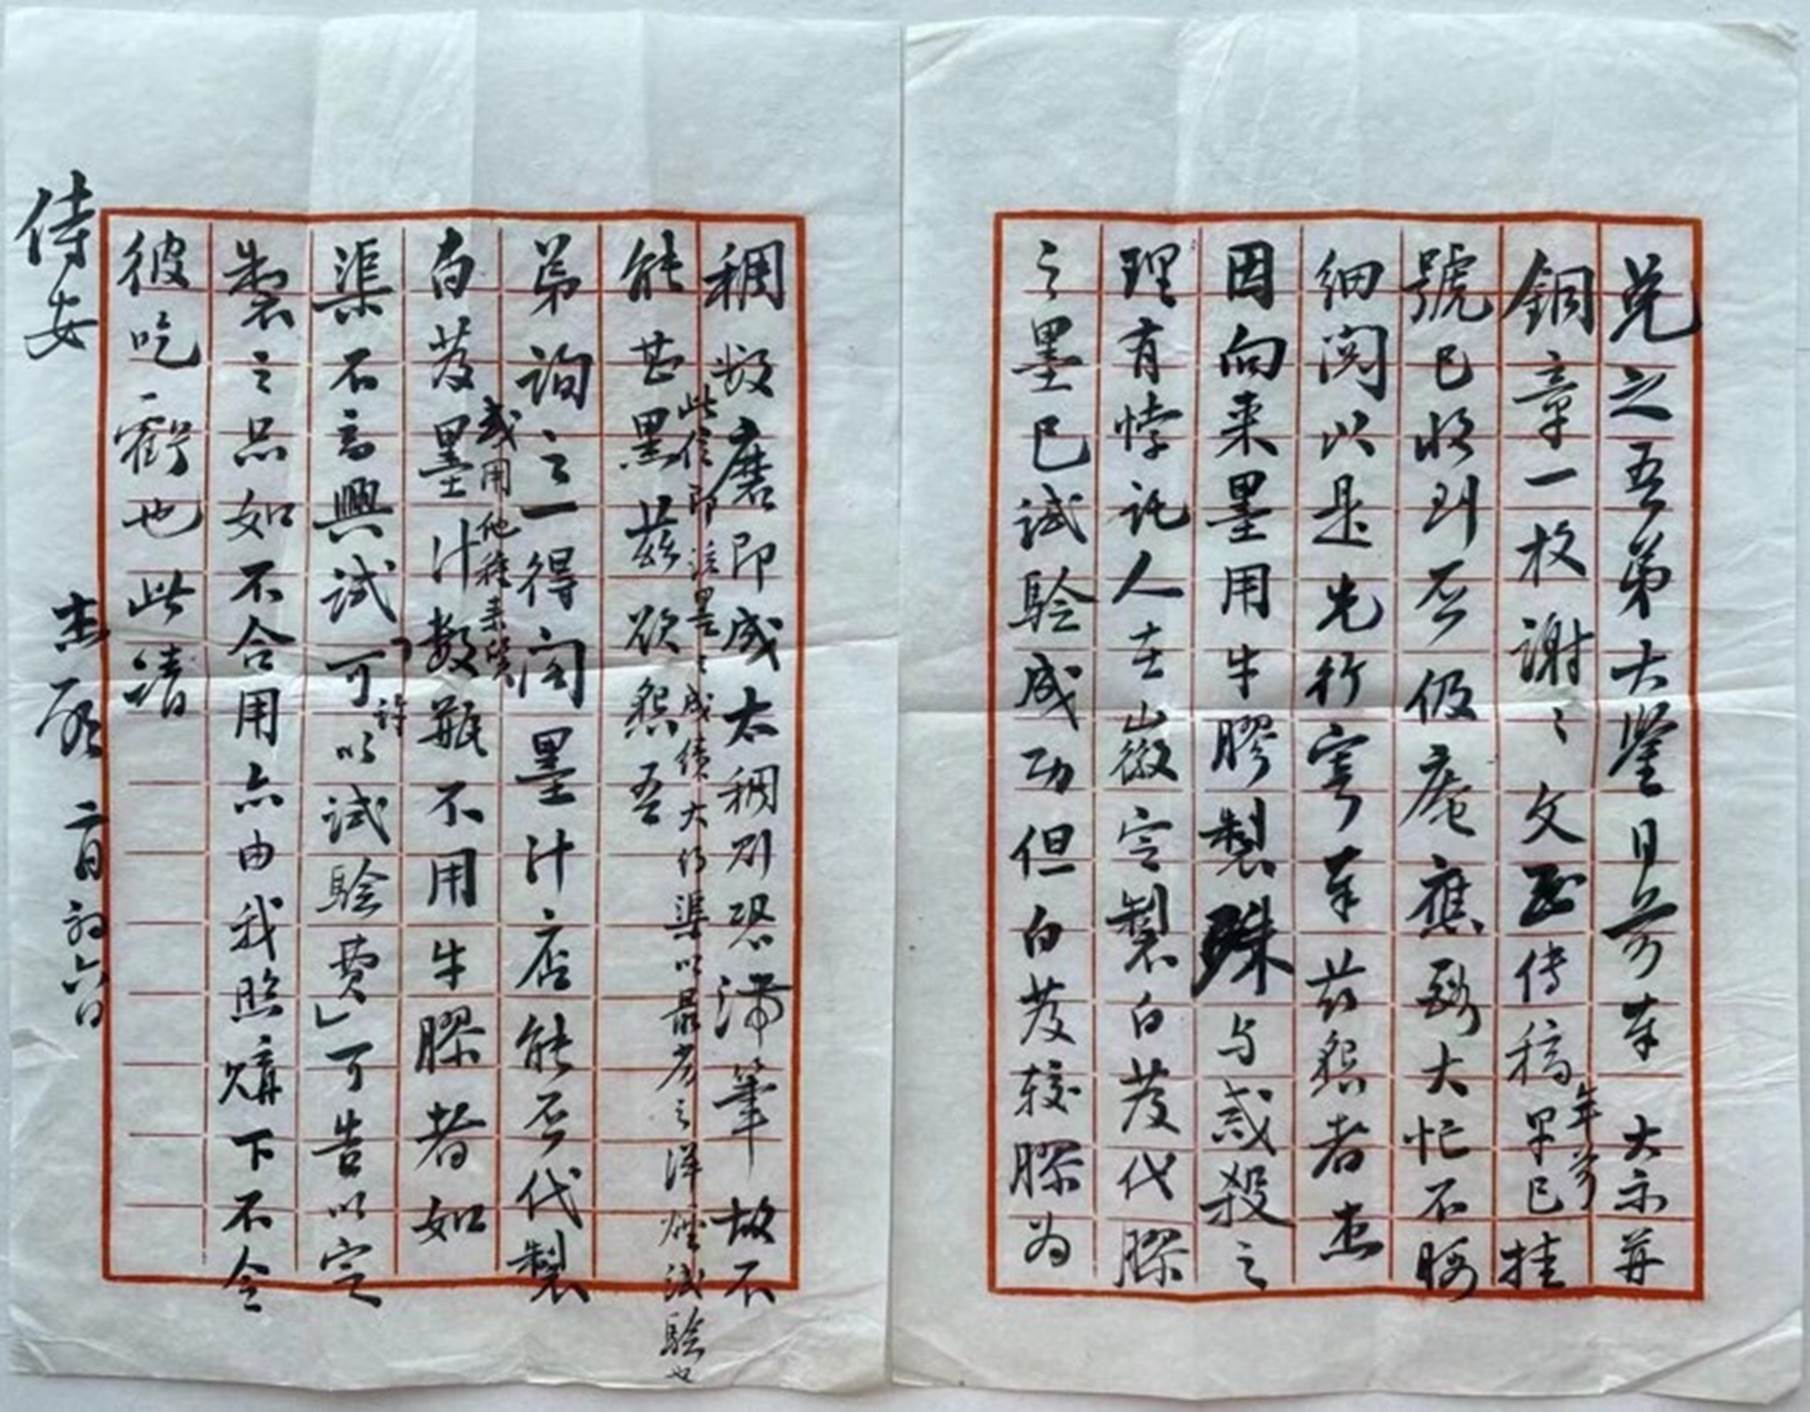 兑之吾弟大鉴日前奉 大示并
銅章一枚謝々文玉傳稿年前早已挂
號已收到否仍庵應酬大忙不暇
細閲以是先行寄奉茲懇者杰
因向来墨用牛膠製殊与戒殺之
理有悖託人在徽定製白芨代膠
之墨已試驗成功但白芨較膠為
稠故磨即成太稠則恐滯筆故不
能甚黑茲欲懇吾
此信即該墨之成績大約渠以最劣之洋烟試驗也
弟詢之一得閣墨汁店能否代製
白芨墨汁數瓶不用牛膠者如
或用他種素膠
渠不高興試可「許以試驗費」可告以定
製之品如不合用亦由我照購下不令
彼吃虧也此请
侍安
杰启 二月初六日